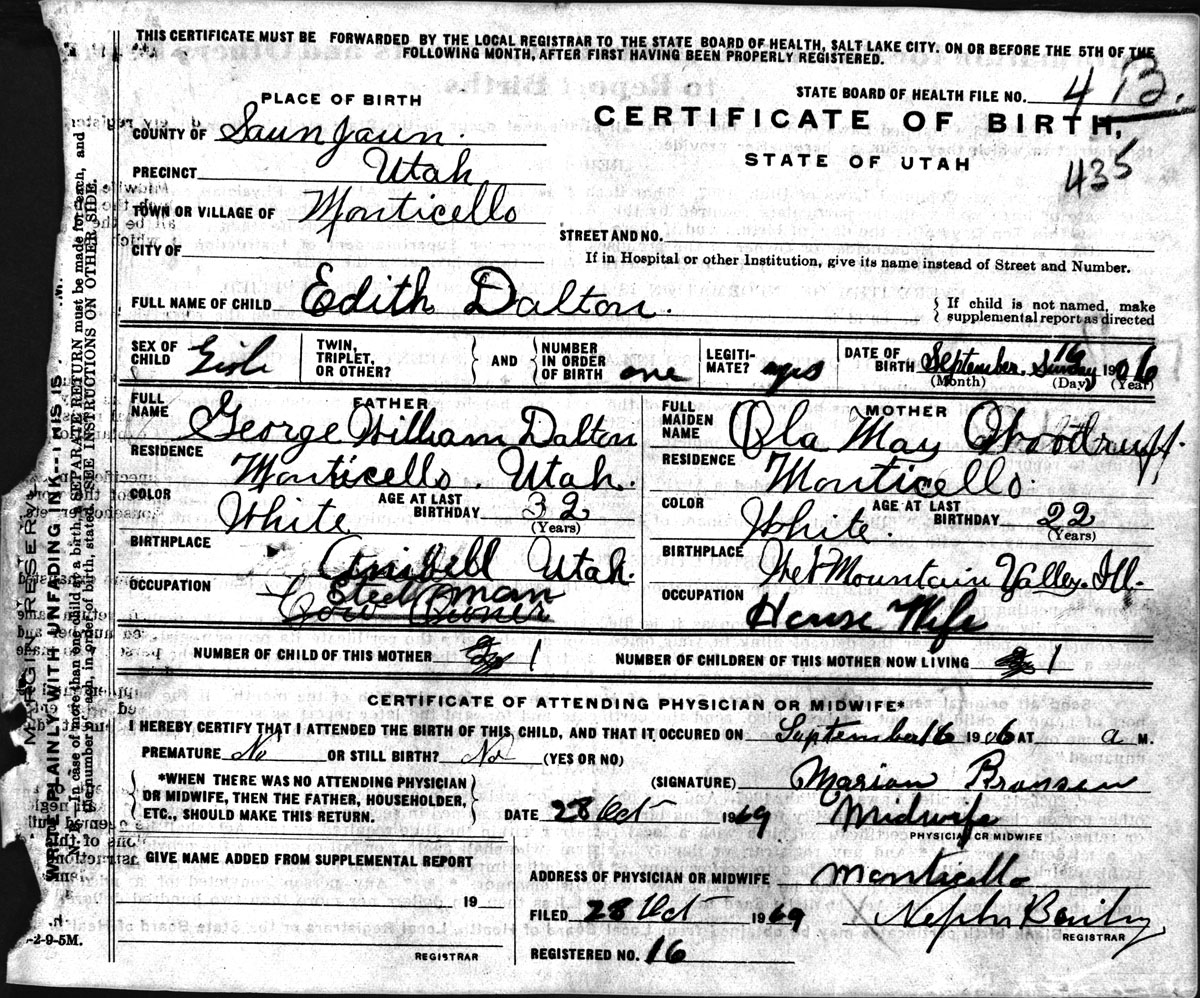 THIS CERTIFICATE MUST BE FORWARDED BY THE LOCAL REGISTRAR TO THE STATE BOARD OF HEALTH, SALT LAKE CITY. ON OR BEFORE THE 5TH OF THE
FOLLOWING MONTH, AFTER FIRST HAVING BEEN PROPERLY REGISTERED.
STATE BOARD OF HEALTH FILE NO. 4
435
PLACE OF BIRTH
CERTIFICATE OF BIRTH,
STATE OF UTAH
COUNTY OF Saun Jaun.
PRECINCT Utah
TOWN OR VILLAGE OF Monticello
STREET AND NO.
CITY OF
If in Hospital or other Institution, give its name instead of Street and Number.
FULL NAME OF CHILD Edith Dalton.
{ If child is not named, make supplemental report as directed
SEX OF CHILD Girl TWIN, TRIPLET, OR OTHER? } AND { NUMBER IN ORDER OF BIRTH one LEGITI- MATE? yes DATE OF BIRTH September. Sunday 16 1906
(Month) (Day) (Year)
FATHER
FULL NAME George William Dalton
RESIDENCE Monticello Utah.
COLOR White AGE AT LAST BIRTHDAY 32
(Years)
BIRTHPLACE Utah.
OCCUPATION
MOTHER
FULL MAIDEN NAME Ola May Woodruff.
RESIDENCE Monticello.
COLOR White. AGE AT LAST BIRTHDAY 22
(Years)
BIRTHPLACE Mountain Valley. Ill.
OCCUPATION House Wife
NUMBER OF CHILD OF THIS MOTHER 1 NUMBER OF CHILDREN OF THIS MOTHER NOW LIVING 1
CERTIFICATE OF ATTENDING PHYSICIAN OR MIDWIFE*
I HEREBY CERTIFY THAT I ATTENDED THE BIRTH OF THIS CHILD, AND THAT IT OCCURED ON September 16 1906 AT a M.
PREMATURE No OR STILL BIRTH? No (YES OR NO)
{ *WHEN THERE WAS NO ATTENDING PHYSICIAN OR MIDWIFE, THEN THE FATHER, HOUSEHOLDER, ETC., SHOULD MAKE THIS RETURN. }
(SIGNATURE) Marian Bronson
DATE 28 Oct 1969 Midwife
PHYSICIAN OR MIDWIFE
GIVE NAME ADDED FROM SUPPLEMENTAL REPORT
19
REGISTRAR
ADDRESS OF PHYSICIAN OR MIDWIFE Monticello
FILED 28 Oct 1969 Nephi Baily
REGISTRAR
REGISTERED NO. 16
MARGIN RESERV
WRITE PLAINLY WITH UNFADING INK---THIS IS
In case of more than one child at a birth, a SEPARATE RETURN must be made for each, and
the number of each, in order of birth, stated. SEE INSTRUCTIONS ON OTHER SIDE.
-2-9-5M.